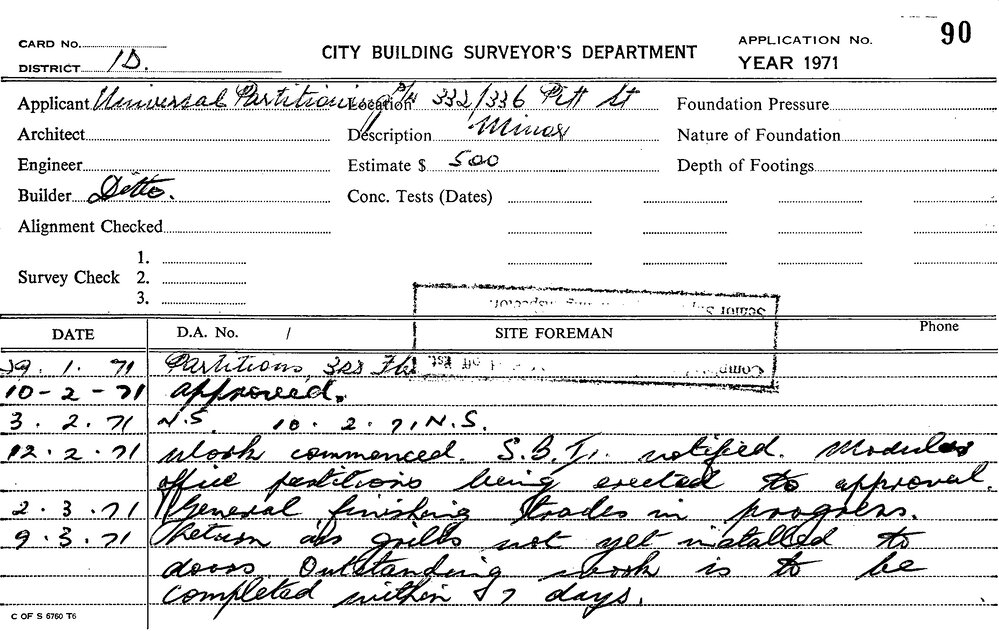 90
CARD No.
CITY BUILDING SURVEYOR'S DEPARTMENT
APPLICATION No.
DISTRICT 1D.
YEAR 1971
Applicant Universal Partitioning P/L Location 332/336 Pitt St Foundation Pressure
Architect Description Minor Nature of Foundation
Engineer Estimate $ 500 Depth of Footings
Builder Ditto. Conc. Tests (Dates)
Alignment Checked
1.
Survey Check 2.
3.
DATE D.A. No. / SITE FOREMAN Phone
29. 1. 71 Partitions,
10-2-71 approved.
3. 2. 71 N.S. 10. 2. 71. N.S.
12.2.71 Work commenced. S.B.I. notified. Modular
office partitions being erected to approval.
2.3.71 General finishing trades in progress.
9.3.71 Return air grills not yet installed to
doors Outstanding work is to be
completed within 7 days.
C OF S 6760 T6